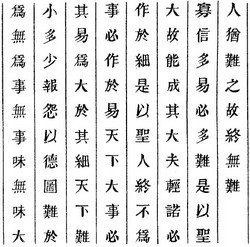 人猶難之故終無難
寡信多易必多難是以聖
大故能成其大夫輕諾必
作於細是以聖人終不為
事必作於易天下大事必
其易為大於其細天下難
小多少報怨以德圖難於
為無為事無事味無味大